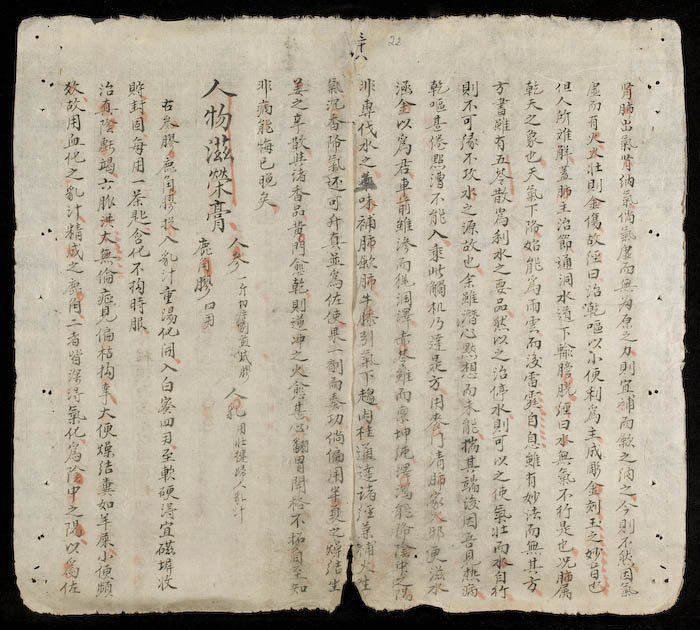 三十八
22
肾肺出氣肾納氣倘氣虛而無海原之力則宜補而斂之納之今則不然因氣
虛而有火火壯則金傷故經曰治乾嘔以小便利為主成彫金刻玉之妙旨也
但人所难解蓋肺主治節通洞水道下輸膀胱經曰水無氣不行是也况肺属
乾天之象也天氣下降始能為雨雲而後雷霆自息雖有妙法而無其方
方書雖有五苓散為利水之要品然以之治停水則可以之使氣壯而水自行
則不可係不坎水之源故也余雖潜心點想而未能揣其端後因吾見热病
乾嘔甚倦然湯不能入乘此觸机乃達是方用麦門清肺家火邪更滋水
涵金以為君車前雖滲而能潤澤赤苓雖而禀坤純澤瀉能除陰中之陽
非專伐水之味補肺斂肺牛膝引氣下趨肉桂通達諸經藥補火生
氣沉香降氣还可升真並為佐使果一劑而奏功倘偏用半夏之燥結生
姜之辛散與诸香品黄門愈乾則道冲之火愈甚心翻胃開格不拓自至知
非病能悔已晚矣
人物滋榮膏 人参 一斤 人乳 用壯樸婦人乳汁
鹿角膠 四两
右参膠鹿角膠投入乳汁重湯化開入白蜜四两至軟硬得宜磁壜收
贮封固每用一茶匙含化不拘時服
治真陰虧竭六脉洪大無倫症見偏枯拘挛大便燥結糞如羊屎小便頻
数故用血化之乳汁精成之鹿角二者皆深得氣化為陰中之陽以為佐